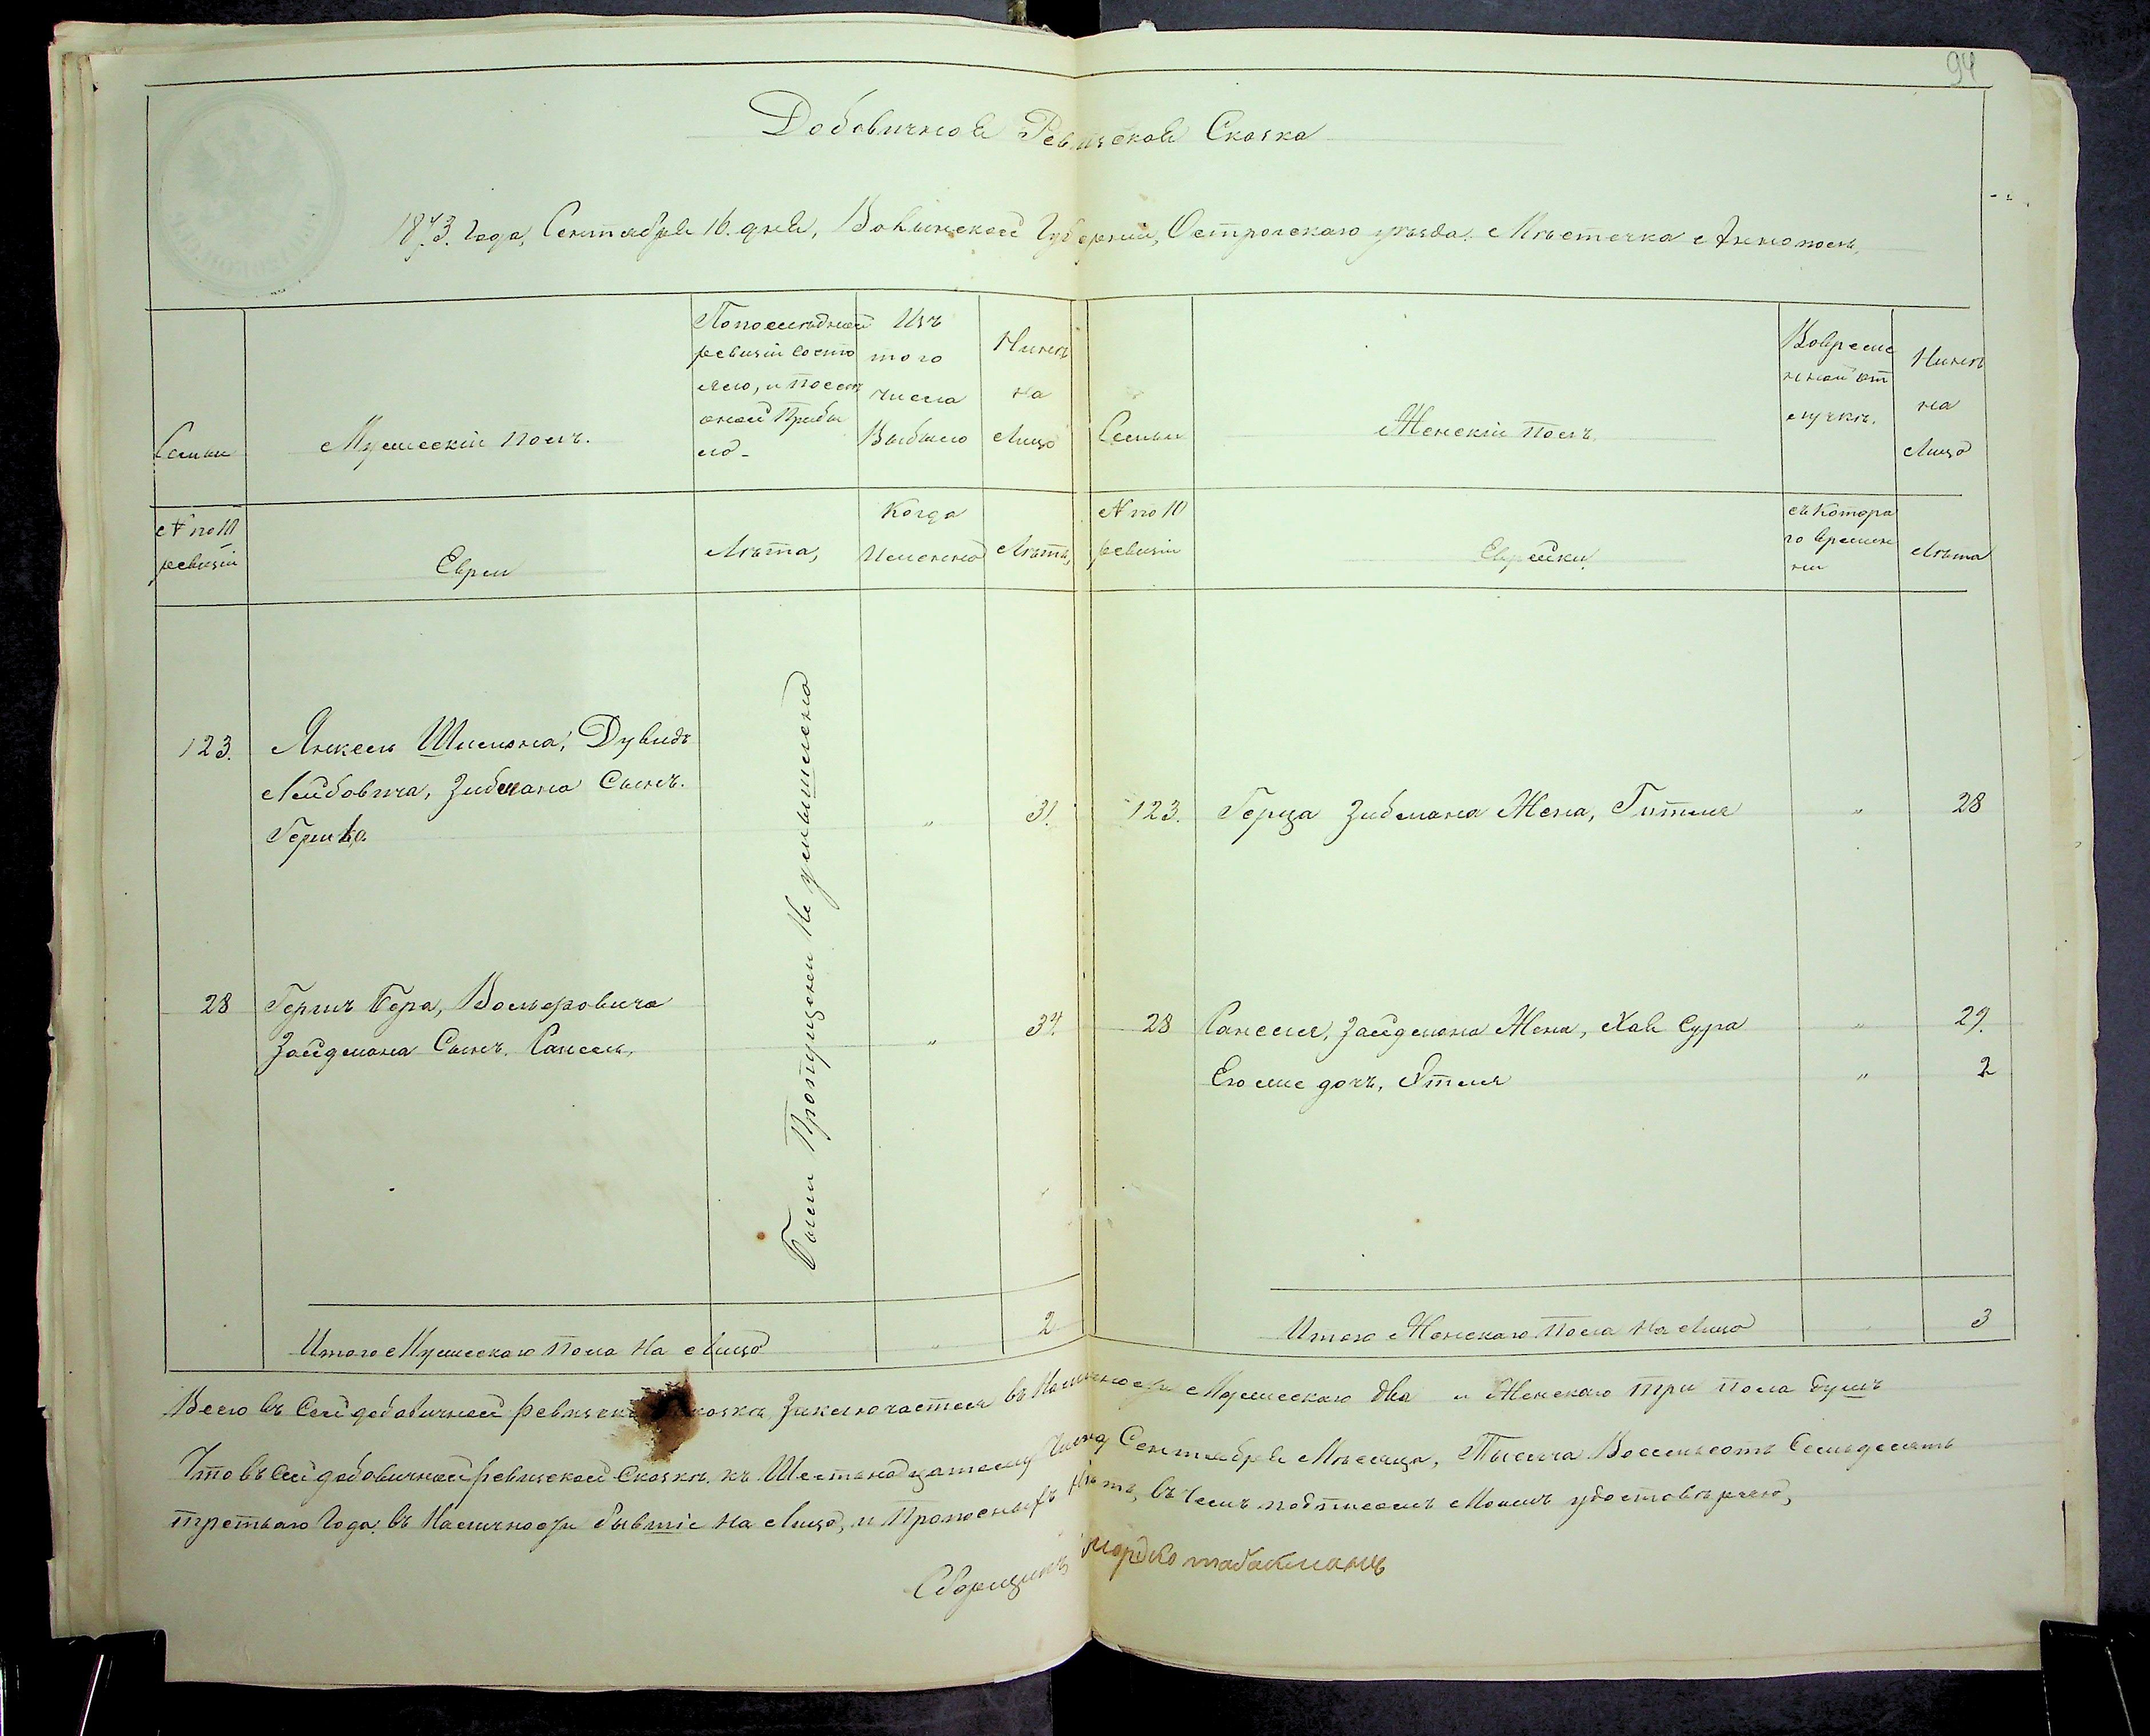 94
Добовичноя Ревизская Сказка
1873. Года, Сентября 16. дня, Волынской Губернии, Острогскаго уѣзда. Мѣстечка Аннополь,
Семьи
Мужескій полъ.
Попослѣдней
ревизіи состо
яло, и после
оной Прибы
ло-
Изъ
того
числа
Выбыло
Нынѣ
на
Лицо
Семьи
Женскій полъ.
Вовреме
нной от
лучкѣ.
Нынѣ
на
Лицо
№ по 10
ревизіи
Евреи
Лѣта,
Когда
Именно
Лѣта,
№ по 10
ревизіи
Еврейки.
съ котора
го времен
ни
Лѣта
Были Пропущени Не умышлено
123.
Янкель Шимона, Дувидъ
Лейбовича, Зибмана Сынъ.
Герша
"
31.
123.
Герца Зибмана Жена, Гителя
"
28
28
Гершъ Бера, Вольфовича
Зайдмана Сынъ. Санель,
"
34.
28
Санеля, Зайдмана Жена, Хая Сура
"
29.
Ею еже дочъ, Этеля
"
2
Итого Мужескаго пола На Лицо
"
2
Итого Женскаго Пола На Лицо
3
Всего въ Сей добавичной ревизской сказкѣ, Заключается въ Наличносты Мужескаго два и Женскаго три пола душъ
Что въ Сей добовичной ревизской Сказкѣ, къ Шестнадцатому Числу Сентября Мѣсяца, Тысяча Восемьсотъ Семьдесятъ
третьяго Года, въ Наличносты бывшіе На Лицо, и Пропосныхъ Нѣтъ, въ чемъ подписомъ Моимъ удостовѣряю,
Сборщикъ Мордко табакманъ